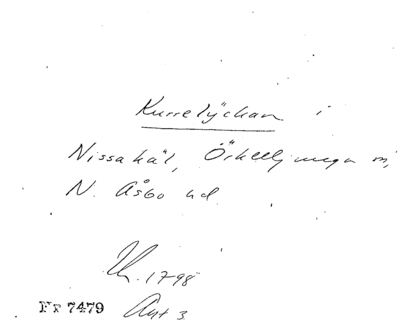 Kurrelyckan i
Nissakäl, Örkelljunga sn,
N. Åsbo hd
1798
Nr 7479 Avt 3